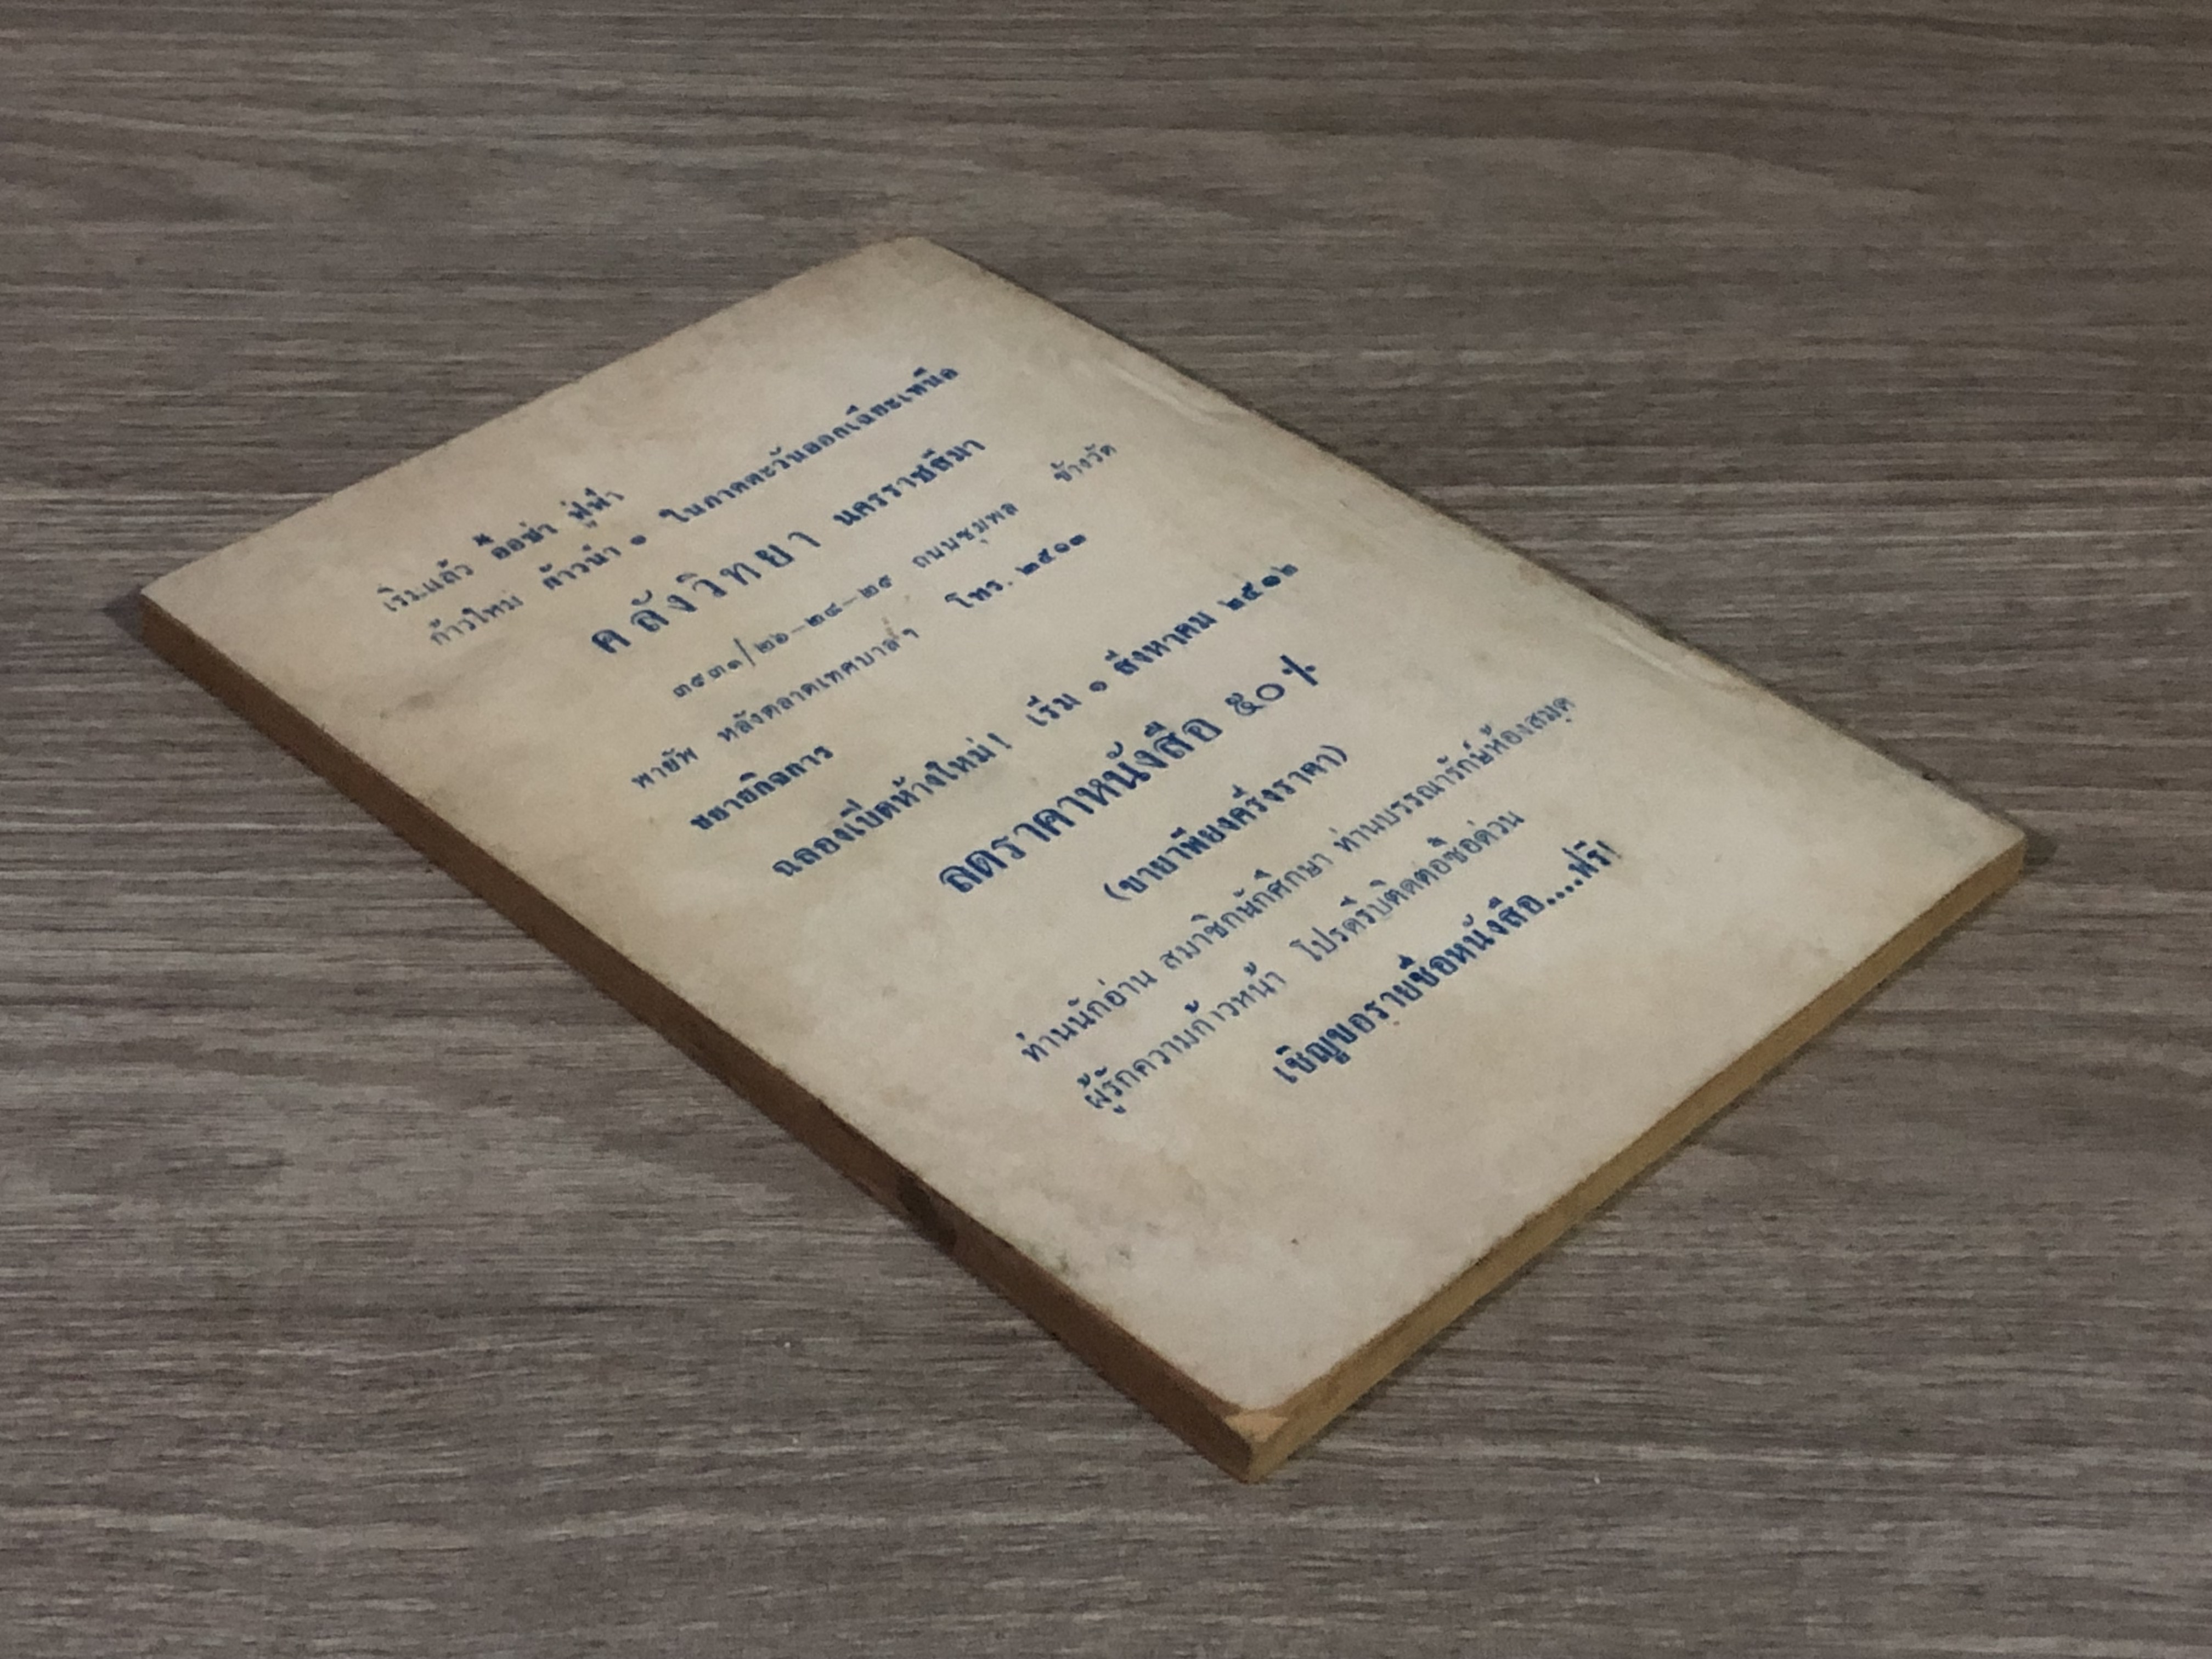 เริ่มแล้ว อื้อซ่า ฟู่ฟ่า
ก้าวใหม่ ก้าวนำ ๑ ในภาคตะวันออกเฉียงเหนือ
คลังวิทยา นครราชสีมา
ถนนชุมพล ข้างวัด
พายัพ หลังตลาดเทศบาลฯ โทร. ๒๔๑๓
ขยายกิจการ
ฉลองเปิดห้างใหม่! เริ่ม ๑ สิงหาคม ๒๕๑๒
ลดราคาหนังสือ ๕๐%
(ขายาเพียงครึ่งราคา)
ท่านนักอ่าน สมาชิกนักศึกษา ท่านบรรณารักษ์ห้องสมุด
ผู้รักความก้าวหน้า โปรดรีบติดต่อซื้อด่วน
เชิญขอรายชื่อหนังสือ....ฟรี!